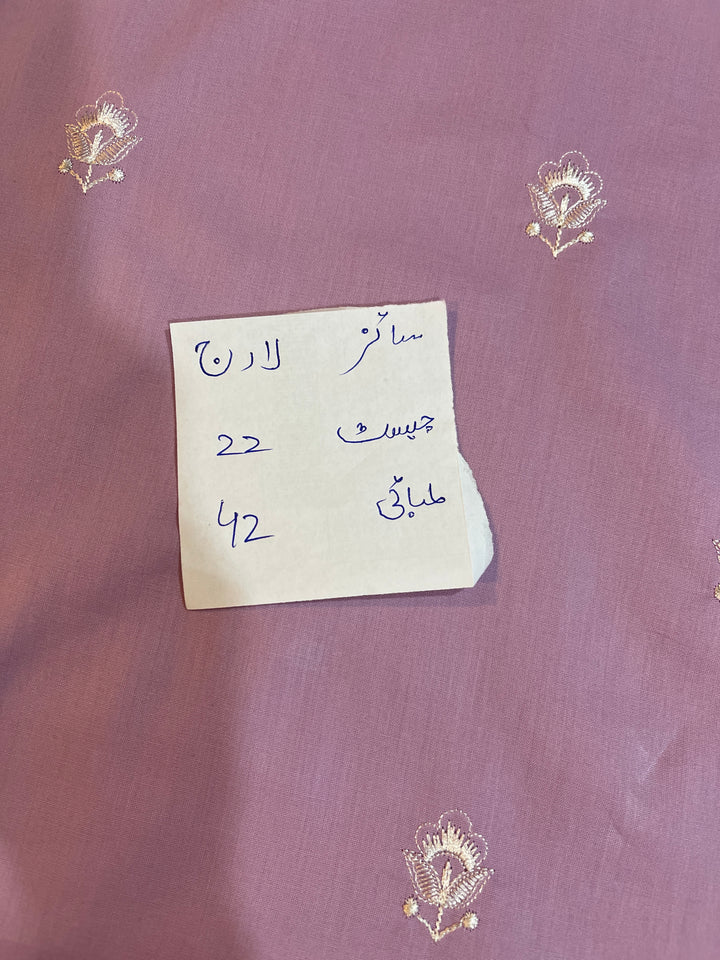 سائز لارج
چیسٹ 22
لمبائی 42